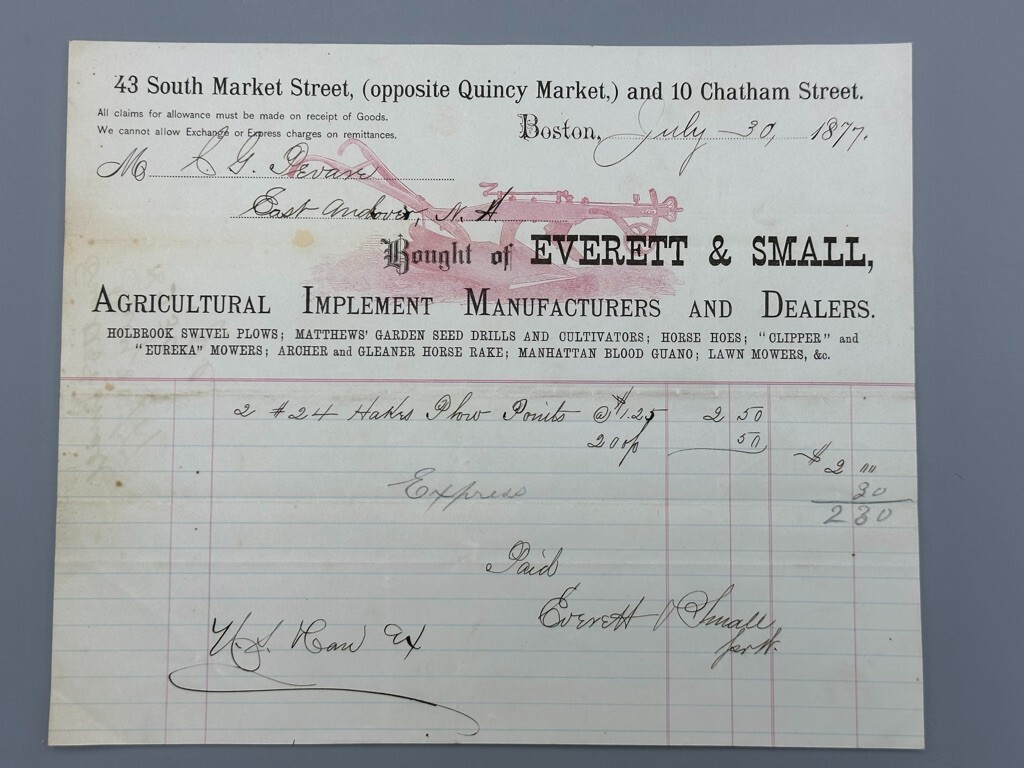 43 South Market Street, (opposite Quincy Market,) and 10 Chatham Street.
All claims for allowance must be made on receipt of Goods.
We cannot allow Exchange or Express charges on remittances.
Boston, July 30, 1877.
M G.
East Andover, N. H.
Bought of EVERETT & SMALL,
AGRICULTURAL IMPLEMENT MANUFACTURERS AND DEALERS.
HOLBROOK SWIVEL PLOWS; MATTHEWS' GARDEN SEED DRILLS AND CULTIVATORS; HORSE HOES; "CLIPPER" and
"EUREKA" MOWERS; ARCHER and GLEANER HORSE RAKE; MANHATTAN BLOOD GUANO; LAWN MOWERS, &c.
2 #24 Hakes Plow Points @ $1.25 2 50
50
$2 "
Express 30
2 30
Paid
Everett & Small
Ex